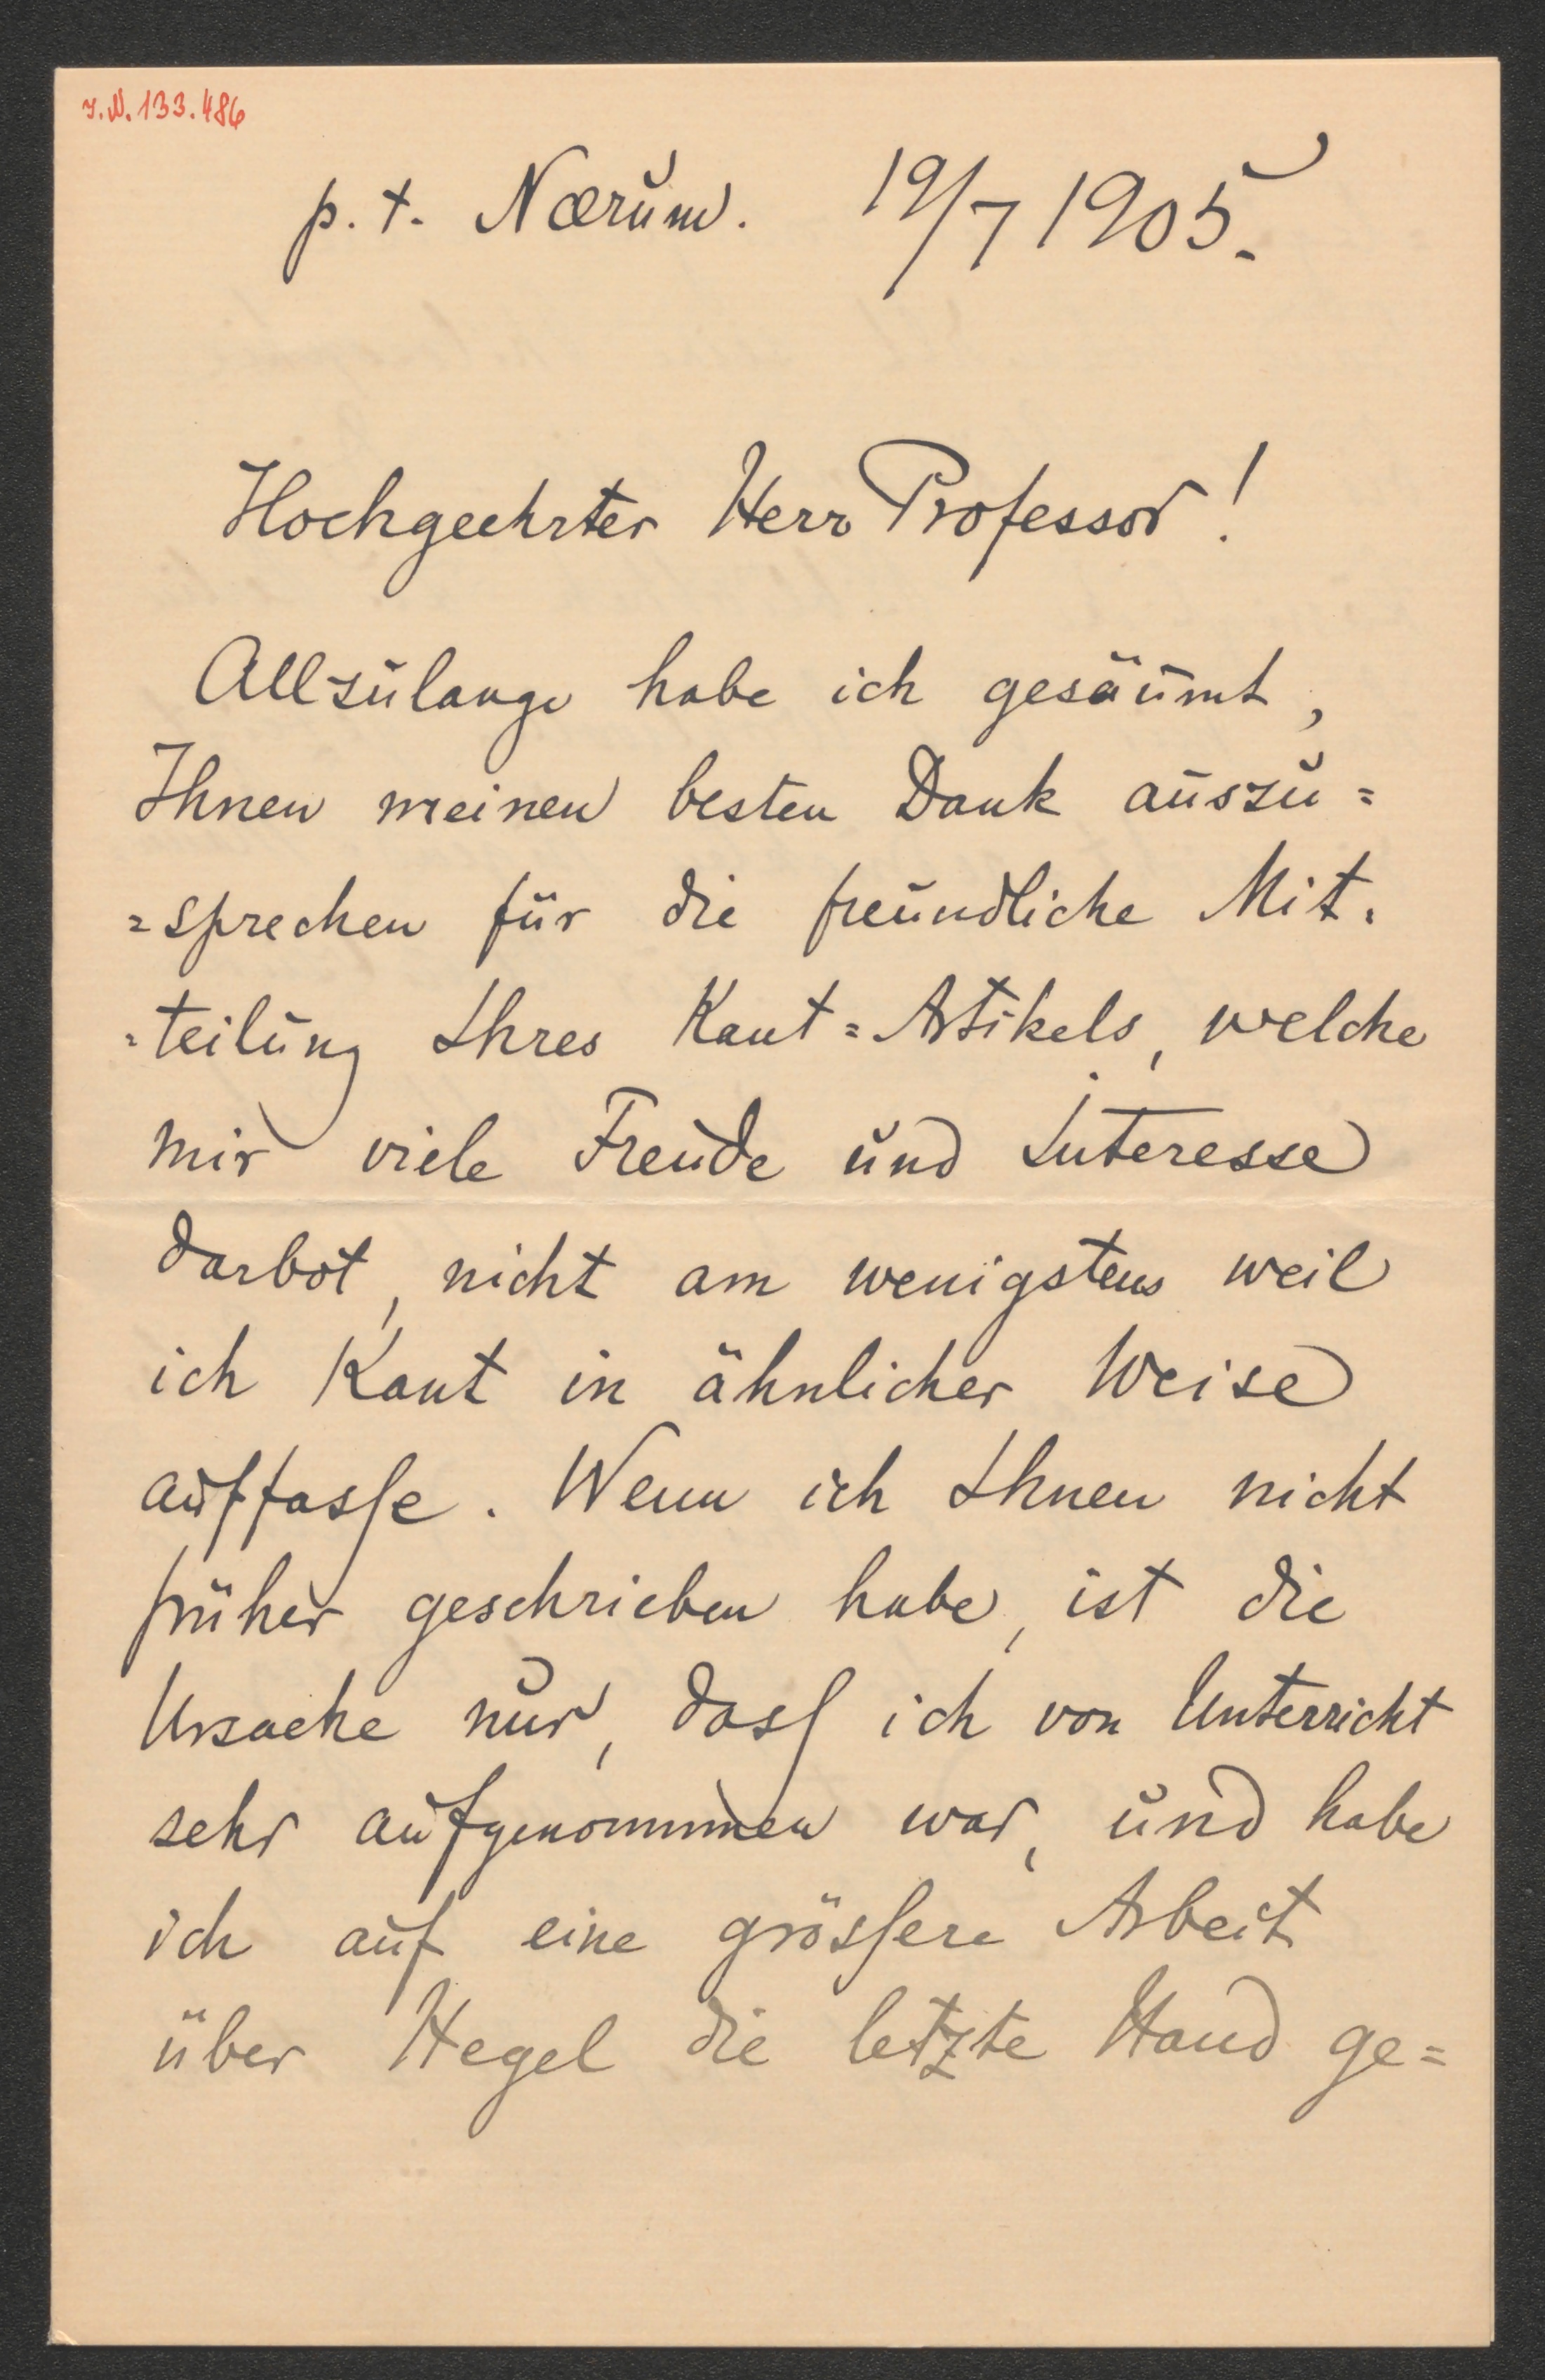 I.N. 133.486
p. t. Nærum. 19/7 1905.
Hochgeehrter Herr Professor!
Allzulange habe ich gesäumt,
Ihnen meinen besten Dank auszu=
=sprechen für die freundliche Mit=
=teilung Ihres Kant=Artikels, welche
mir viele Freude und Interesse
darbot, nicht am wenigstens weil
ich Kant in ähnlicher Weise
auffasse. Wenn ich Ihnen nicht
früher geschrieben habe, ist die
Ursache nur, dass ich von Unterricht
sehr aufgenommen war, und habe
ich auf eine grössere Arbeit
über Hegel die letzte Hand ge=